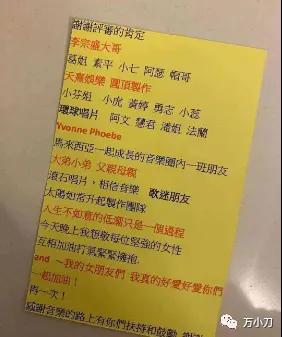 謝謝評審的肯定
李宗盛大哥
葛姐 素平 小七 阿瑟 帕哥
天熹娛樂 圓頂製作
小芬姐 小虎 黃婷 勇志 小蕊
環球唱片 阿文 慧君 潘姐 法蘭
Yvonne Phoebe
馬來西亞一起成長的音樂圈內一班朋友
大弟小弟 父親母親
滾石唱片，相信音樂 歌迷朋友
太陽如常升起製作團隊
人生不如意的低潮只是一個過程
今天晚上我想敬每位堅強的女性
互相加油打氣緊緊擁抱
and ～我的女朋友們 我真的好愛好愛你們
一起加油！
再一次！
感謝音樂的路上有你們扶持和鼓勵 謝謝
万小刀